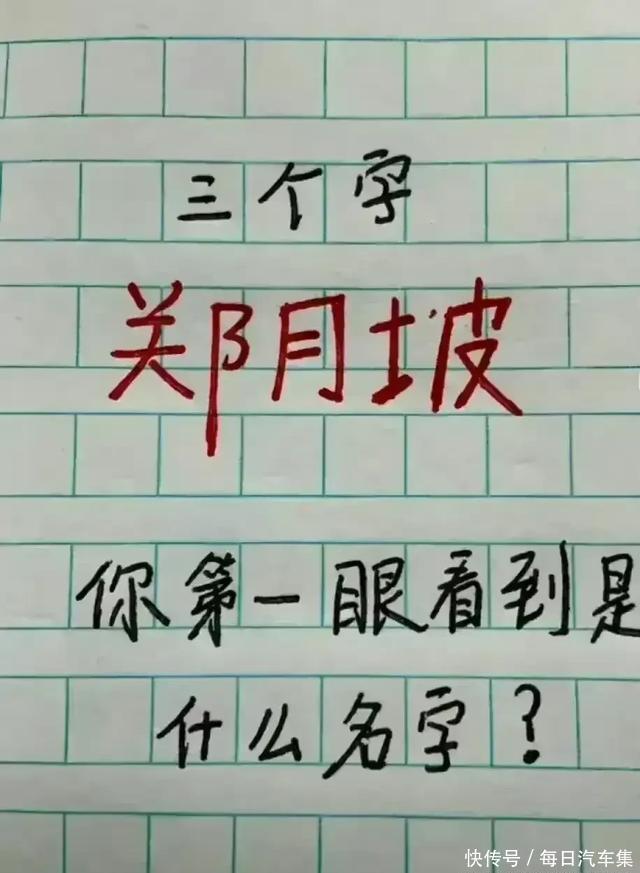 三个字
郑月坡
你第一眼看到是
什么名字?
快传号/每日汽车集